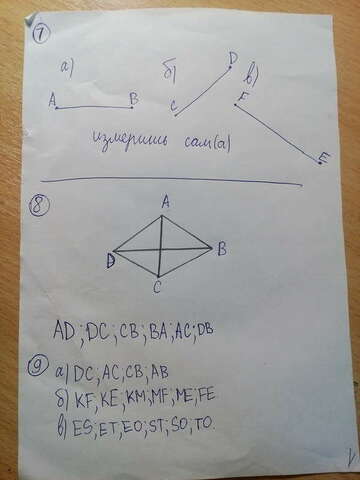 7
а) б) в)
A B C D F E
измеришь сам(а)
8
A
D B
C
AD; DC; CB; BA; AC; DB
9 а) DC, AC, CB, AB
б) KF, KE, KM, MF, ME, FE.
в) ES, ET, EO, ST, SO, TO.